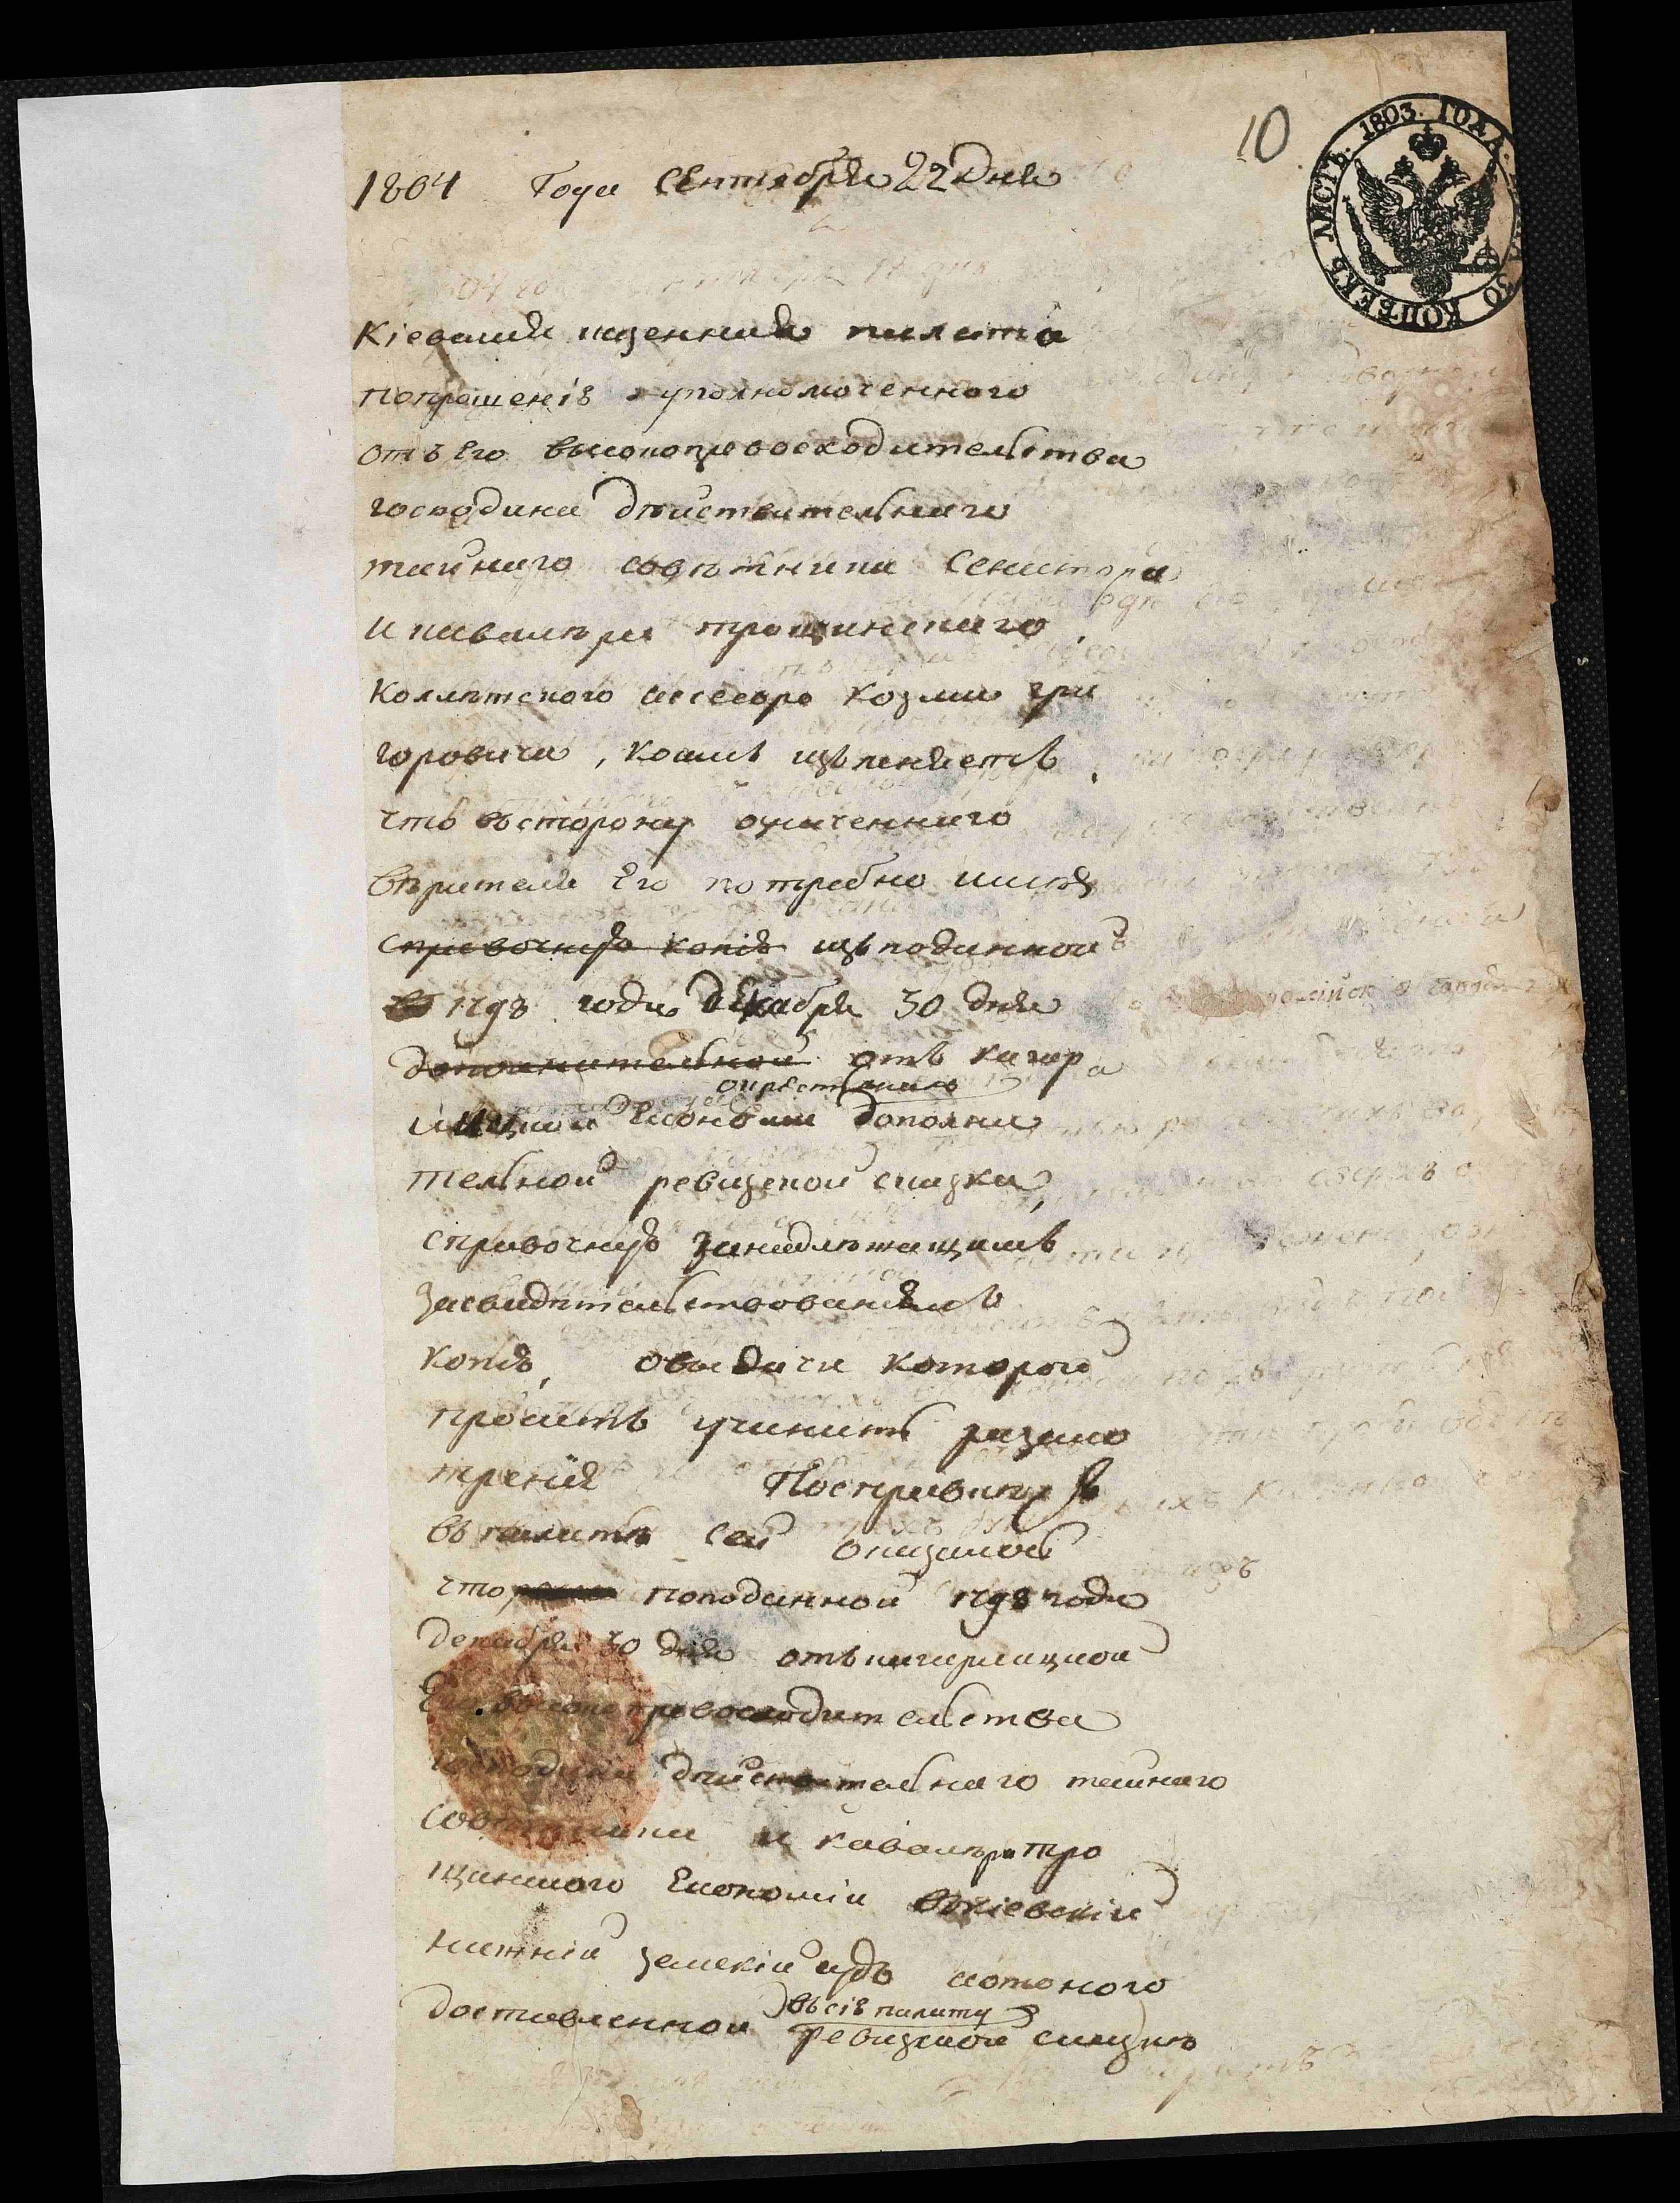 10
1803. ГОДА. ЦѢНА 30 КОПѢЕКЪ ЛИСТЪ.
1804 Года Сентября 22 дня
Кіевская казенная палата
попрошенію уполномоченного
отъ Его высокопревосходительства
господина дѣйствительнаго
тайнаго совѣтника Сенатора
и кавалѣра трощинскаго
Коллѣжского ассесора козмы гри
горовича, коимъ изъясняетъ
что въсторону означеннаго
вѣрителя Его потребно имѣть
справочную копію изъподанной
въ 1798 году декабря 30 дня
дополнительной отъ кагар
окрестностию
лицкой Економіи дополни
тельной ревизской сказки,
справочную занадлѣжащимъ
засвидѣтельствованіемъ
копію, овыдачи которой
проситъ учинить разсмо
треніе Посправкѣ
въ палатѣ сей оказалось
что поподанной 1798 года
декабря 30 дня откагарлицкой
Его высокопревосходительства
господина дѣйствительнаго тайнаго
совѣтника и кавалѣра тро
щинского Економіи въкіевскій
нижній земскій судъ аотоного
въсію палату
доставленной ревизской сказкѣ